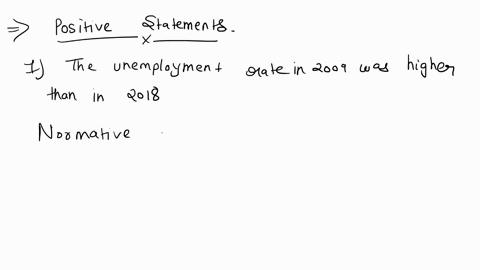 ⇒ Positive Statements.
1) The unemployment rate in 2009 was higher
than in 2018
Normative